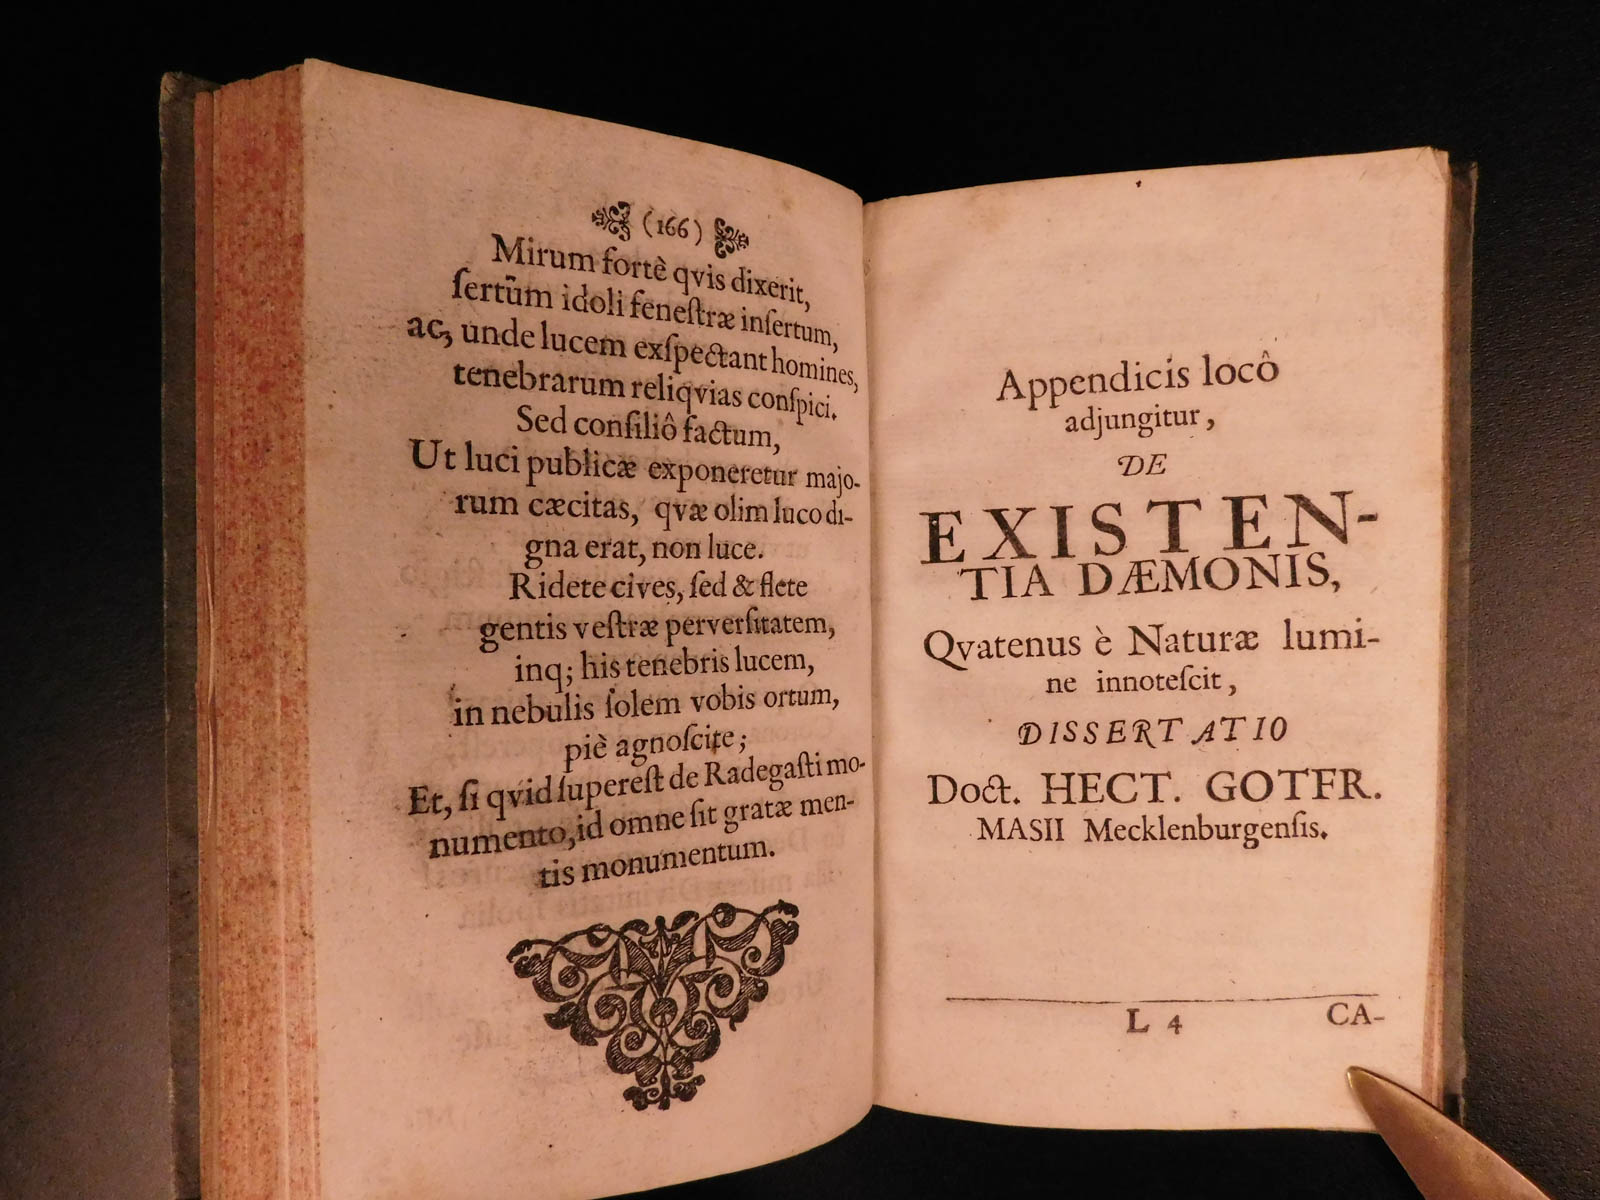 (166)
Mirum fortè qvis dixerit,
ſertūm idoli feneſtræ inſertum,
acꝫ unde lucem exſpectant homines,
tenebrarum reliqvias conſpici.
Sed conſiliô factum,
Ut luci publicæ exponeretur majo-
rum cæcitas, qvæ olim luco di-
gna erat, non luce.
Ridete cives, ſed & flete
gentis veſtræ perverſitatem,
inq; his tenebris lucem,
in nebulis ſolem vobis ortum,
piè agnoſcite;
Et, ſi qvid ſupereſt de Radegaſti mo-
numento, id omne ſit gratæ men-
tis monumentum.
Appendicis locô
adjungitur,
DE
EXISTEN-
TIA DÆMONIS,
Qvatenus è Naturæ lumi-
ne innoteſcit,
DISSERTATIO
Doct. HECT. GOTFR.
MASII Mecklenburgenſis.
L 4 CA-